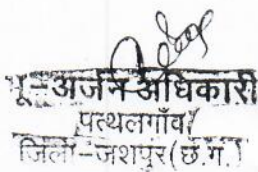 भू-अर्जन अधिकारी
पत्थलगॉंव
जिला-जशपुर(छ.ग.)